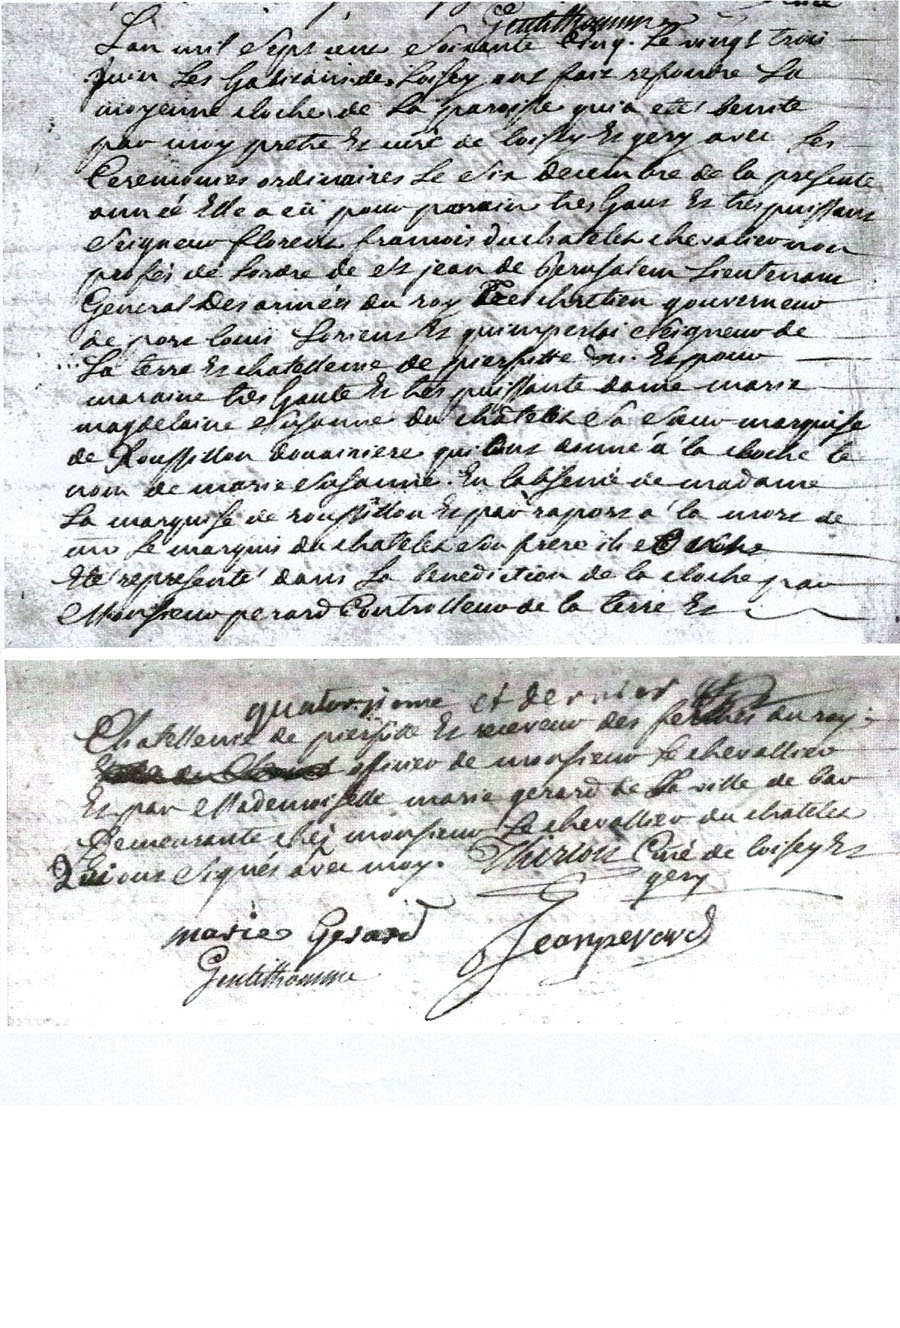 Gentilhomme
L'an mil Sept cent Soixante Cinq. Le vingt trois
Juin Les habitans de Loisey ont fait refondre La
moyenne cloche de La paroisse qui a eté benite
par moy pretre Et curé de loisey Et gery avec les
Ceremonies ordinaires Le Six decembre de la presente
année Elle a eü pour parain tres haut Et tres puissant
Seigneur florent francois du chatelet chevalier non
profés de Lordre de st jean de Jerusalem Lieutenant
General Des armées du roy tres chretien gouverneur
de port louis Lorient Et quimperlai Seigneur de
La terre Et chatellenie de pierfitte &c. Et pour
maraine tres haute Et tres puissante dame marie
magdelaine Susanne du chatelet Sa Sœur marquise
de Roussillon douairiere qui ont donné a la cloche le
nom de marie Susanne. En l'absence de madame
La marquise de roussillon Et par raport a la mort de
mr Le marquis du chatelet Son frere ils ont
Eté representé dans La benediction de la cloche par
Monsieur perard Controlleur de la terre Et
quatorzieme et dernier
Chatellenie de pierfitte Et receveur des fermes du roy
officier de monsieur Le chevallier
Et par Mademoiselle marie gerard de la ville de bar
Demeurante chez monsieur Le chevallier du chatelet
Qui ont Signés avec moy. Thirion Curé de loisey Et
gery
marie Gerard Jean perard
Gentilhomme